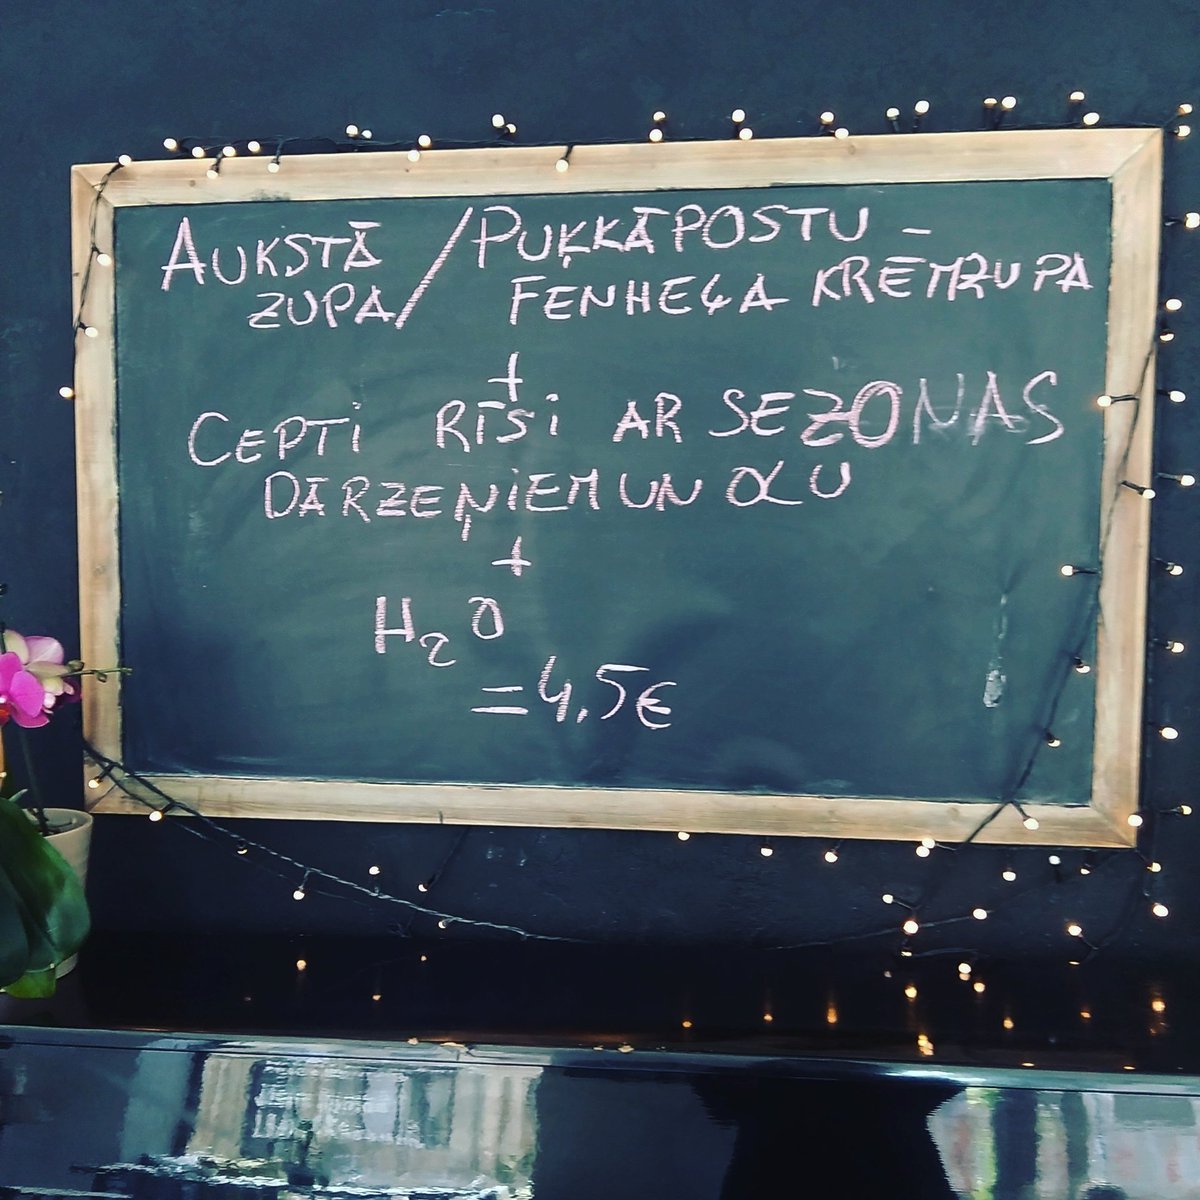 AUKSTĀ / PUĶKĀPOSTU -
ZUPA / FENHEĻA KRĒMZUPA
+
CEPTI RĪSI AR SEZONAS
DĀRZEŅIEM UN OLU
+
H₂O
= 4,5€